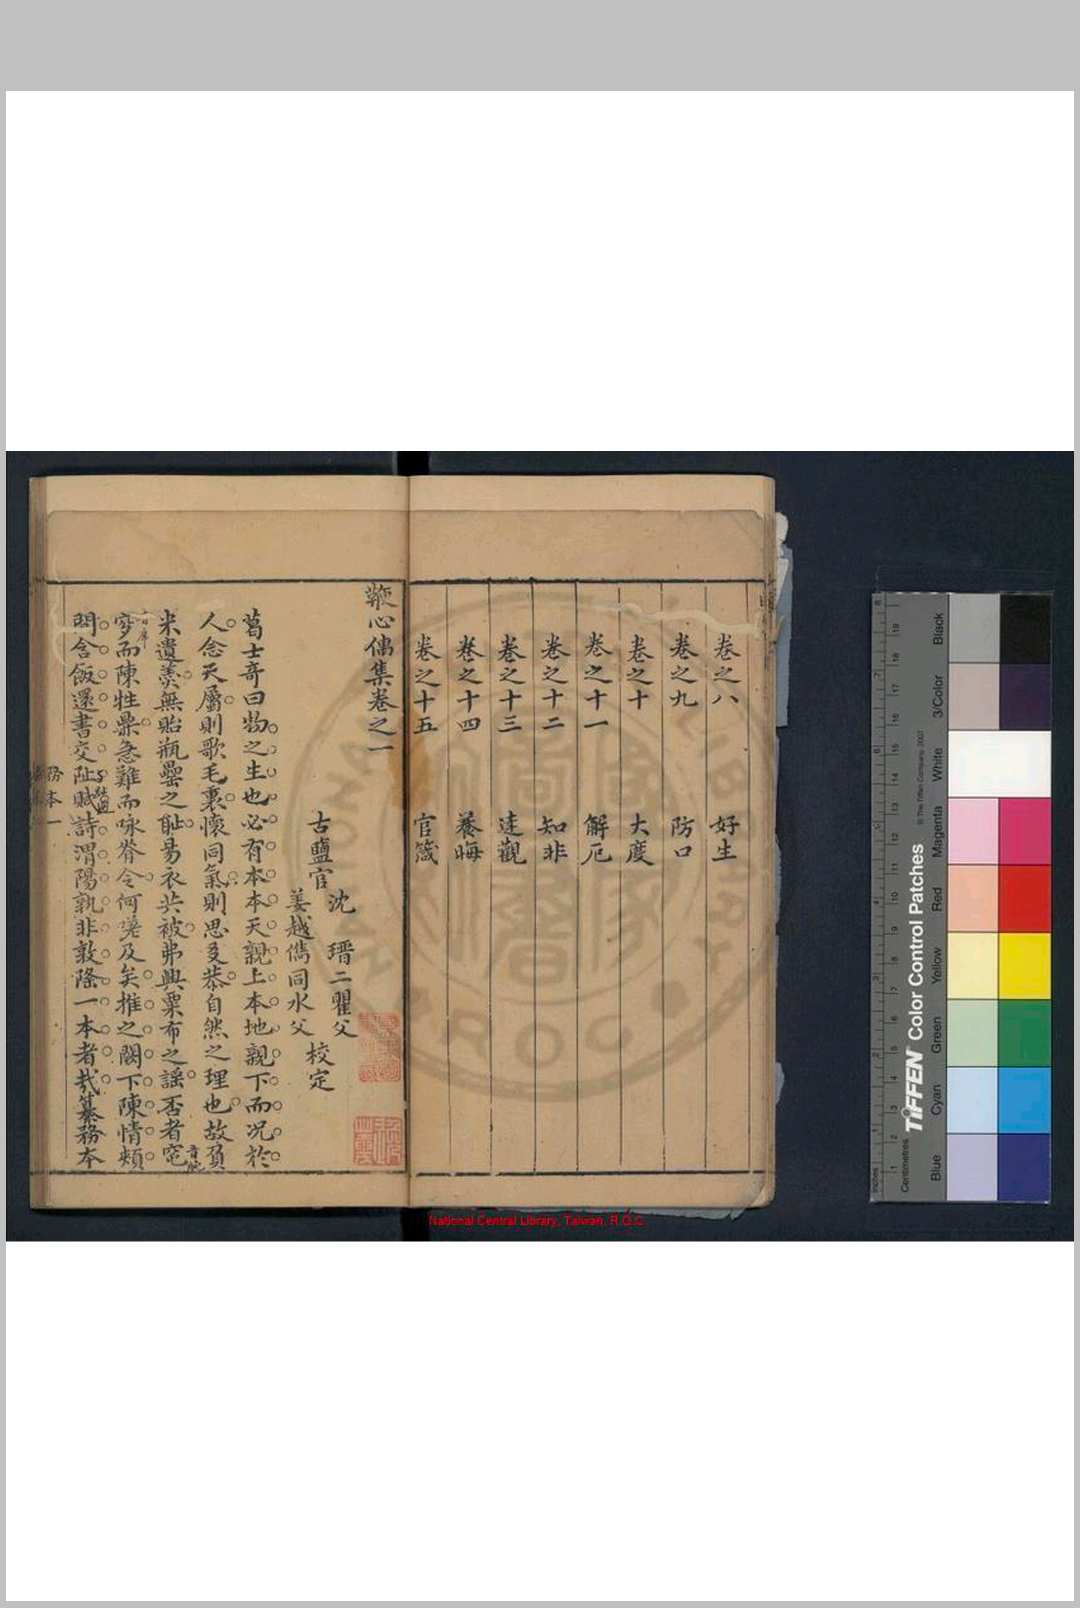 卷之八 好生
卷之九 防口
卷之十 大度
卷之十一 解厄
卷之十二 知非
卷之十三 達觀
卷之十四 養晦
卷之十五 官箴
鞭心儁集卷之一
沈 瑨二瞿父
古鹽官 校定
姜越儁同水父
葛士奇曰物之生也必有本本天親上本地親下而况於
人念天屬則歌毛裏懷同氣則思友恭自然之理也故負
米遺羹無貽瓶罍之恥易衣共被弗興粟布之謠否者窀
穸而陳牲鼎急難而咏脊令何嗟及矣推之闕下陳情頰
間含飯還書交阯賦詩渭陽孰非敦降一本者哉纂務本
務本一
National Central Library, Taiwan, R.O.C
TIFFEN Color Control Patches
© The Tiffen Company, 2007
Inches
Centimetres
Blue
Cyan
Green
Yellow
Red
Magenta
White
3/Color
Black